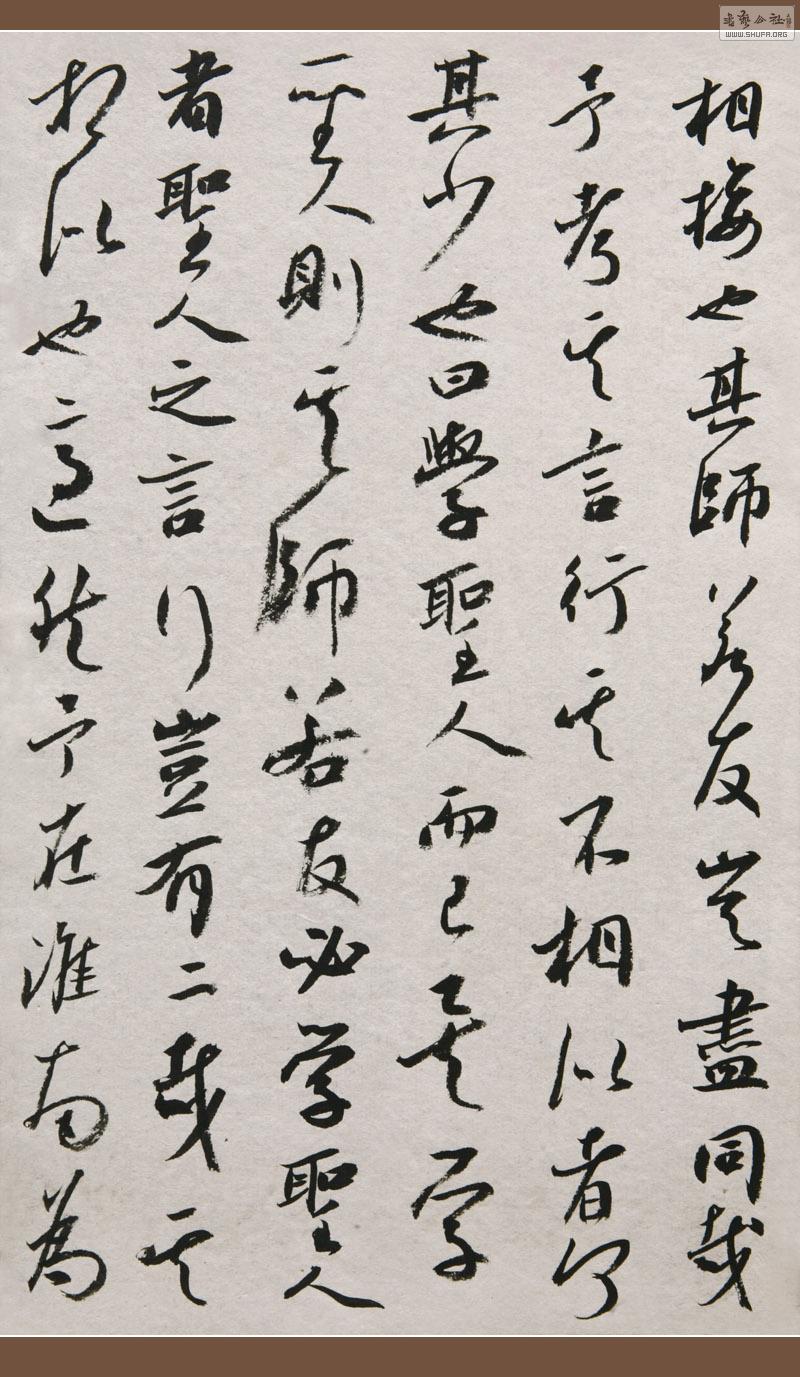 書藝公社
WWW.SHUFA.ORG
相接也其師若友豈盡同哉
予考其言行其不相似者何
其少也曰學聖人而已矣学
聖人則其師若友必学聖人
者聖人之言行豈有二哉其
相似也適然予在淮南為